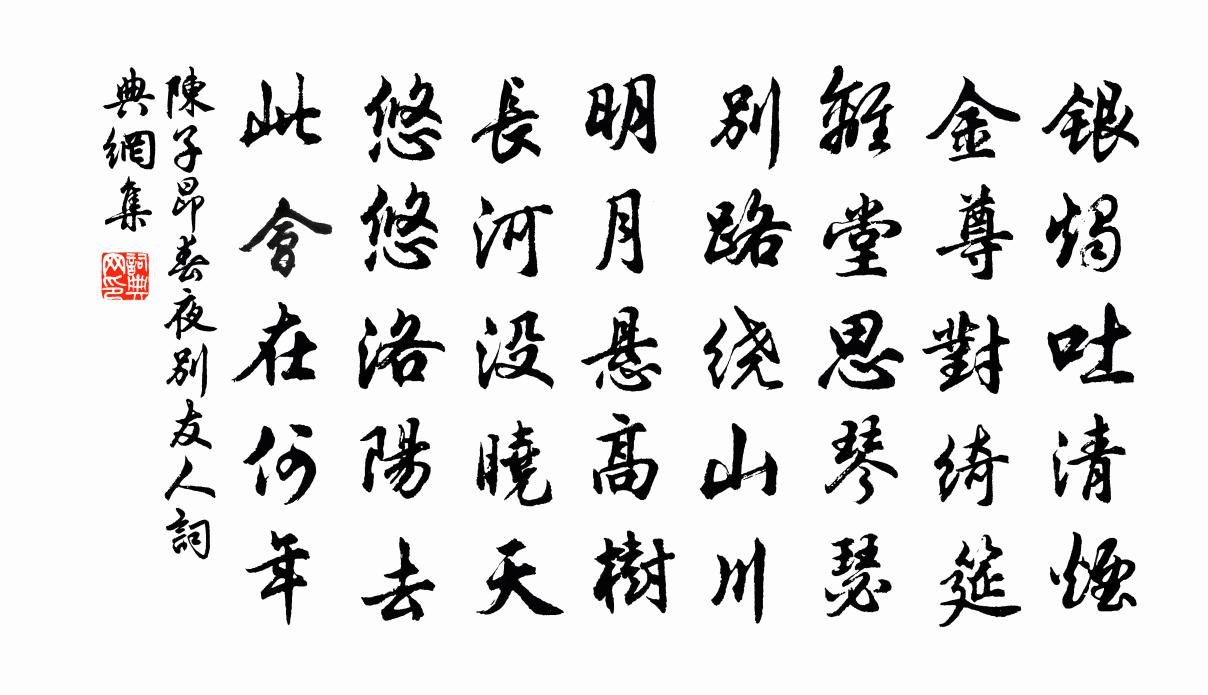 銀燭吐清煙
金尊對綺筵
離堂思琴瑟
别路绕山川
明月悬高樹
長河没曉天
悠悠洛陽去
此會在何年
陳子昂春夜别友人詞
典網集
詞典
网印